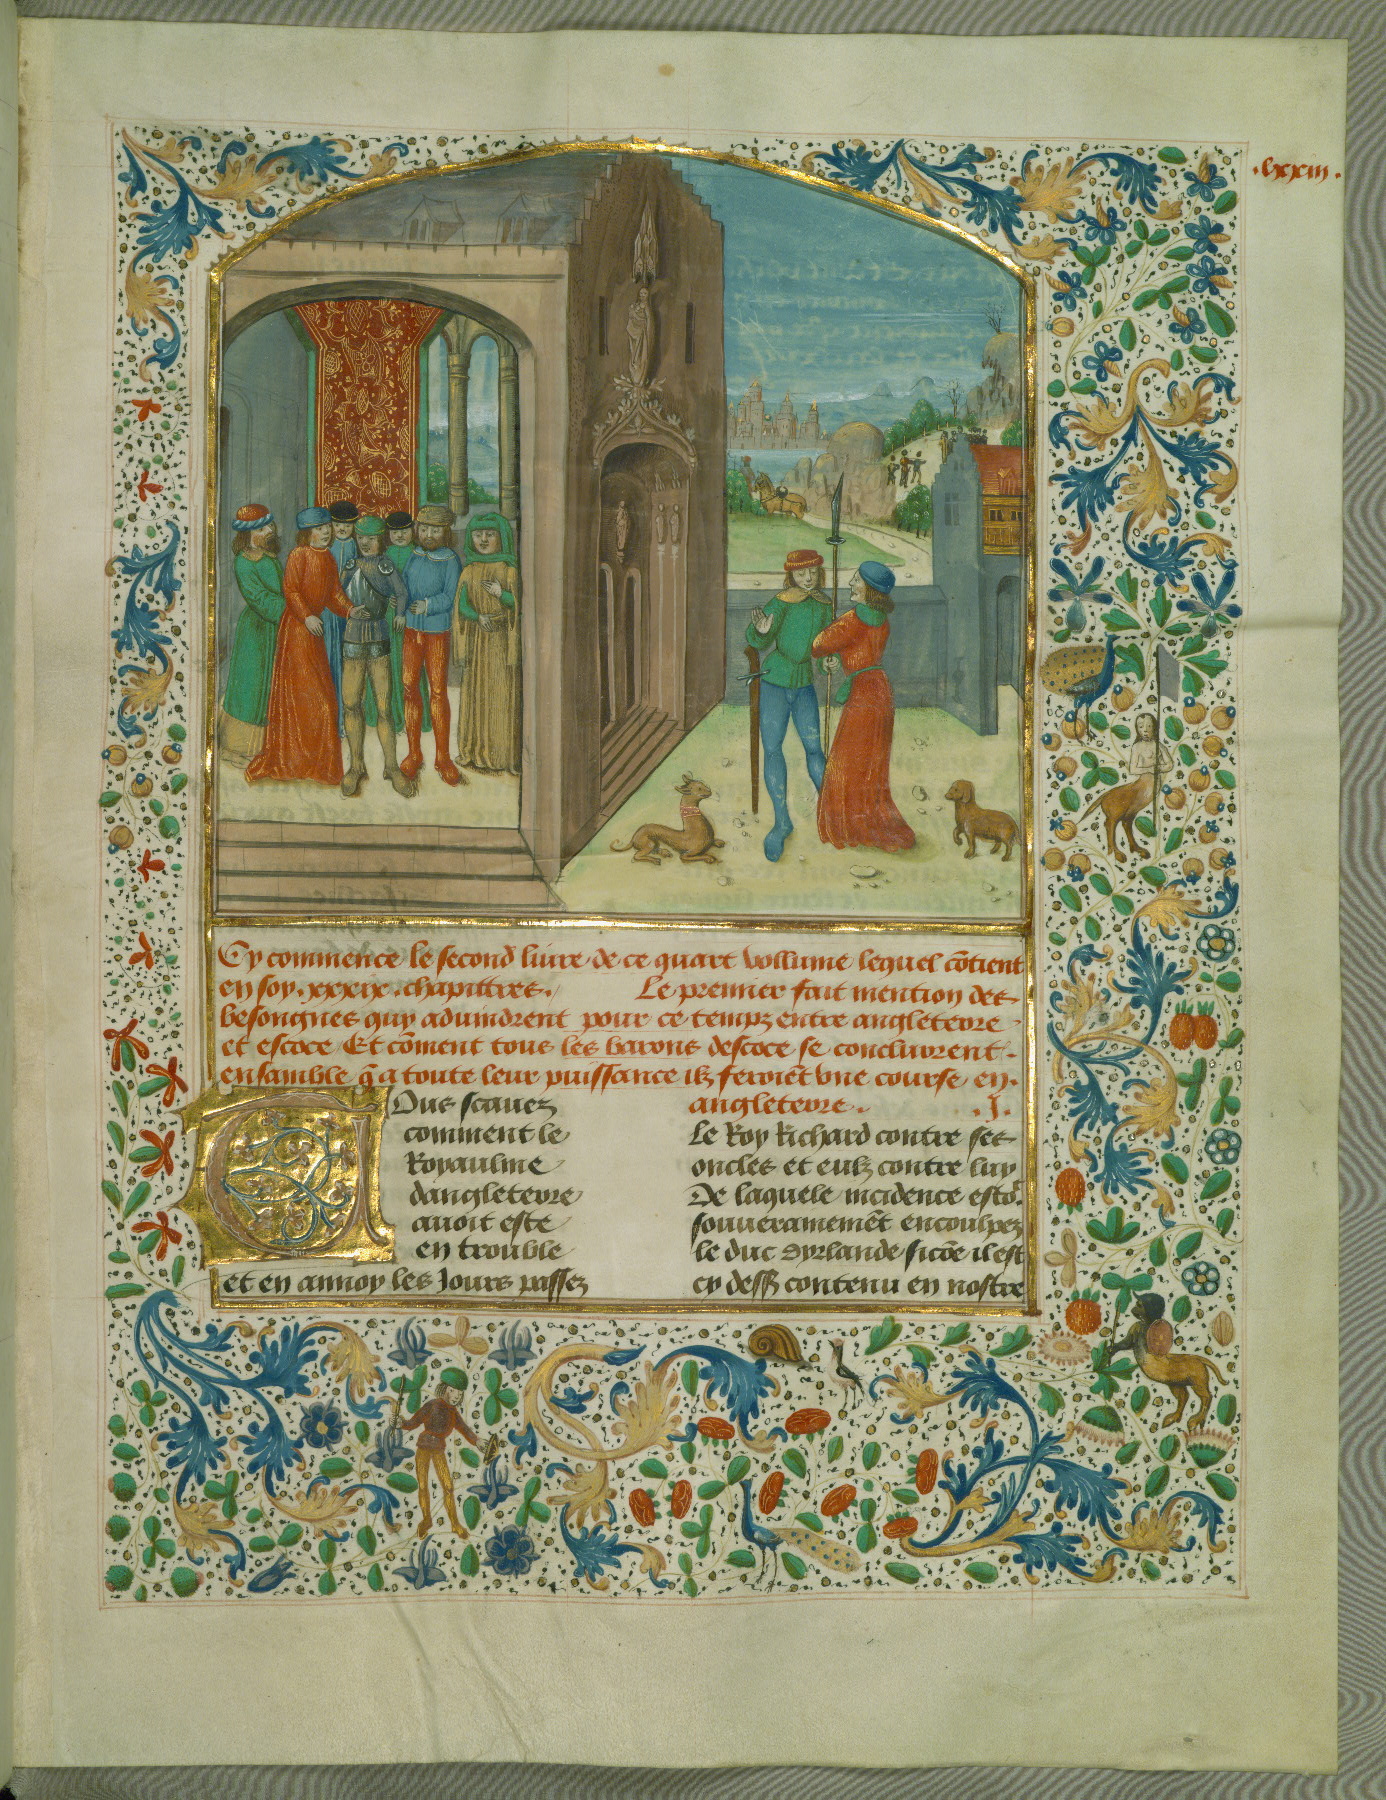 .lxxiii.
Cy commence le second liure de ce quart vollume lequel cōtient
en soy .xxxix. chapittres. Le premier fait mention des
besongnes quy aduindrent pour ce tempz entre angleterre
et escoce Et cōment tous les barons descoce se conclurent.
ensamble q̄ a toute leur puissance ilz feroiēt vne course en.
angleterre. .J.
Vous scauez
comment le
Royaulme
dangleterre
auoit este
en trouble
et en annoy les Jours passez
Le Roy Richard contre ses
oncles et eulz contre luy
De laquele incidence estoi
souuerainemēt encoulpez
le duc dyrlande sicōe il est
cy dess9 contenu en nostre